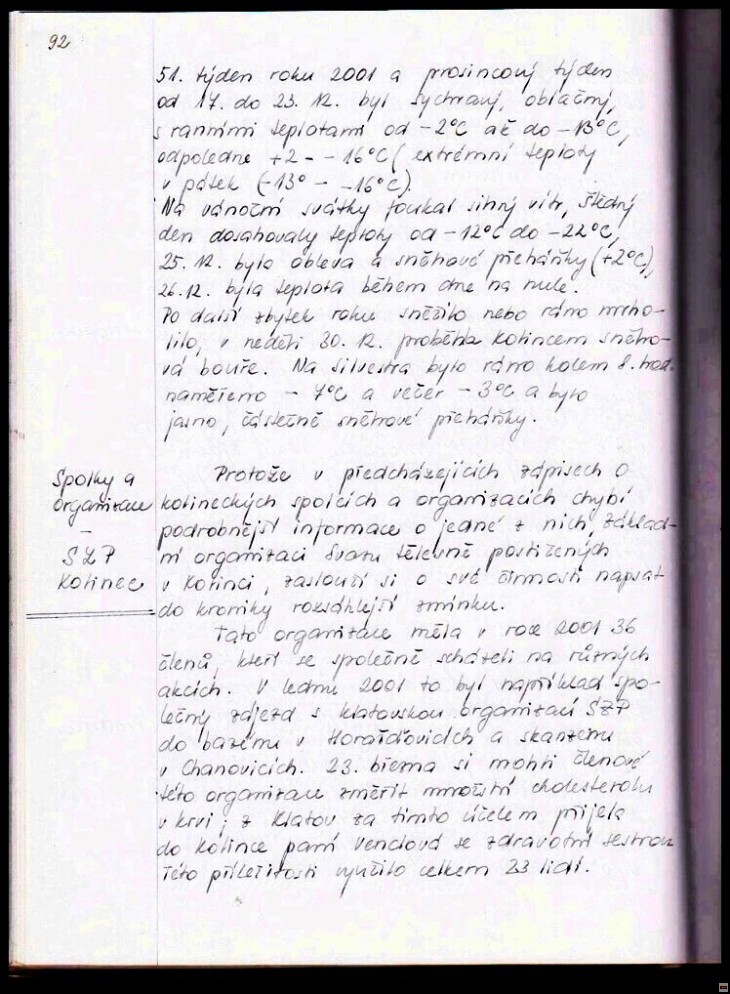 92
51. týden roku 2001 a prosincový týden
od 17. do 23. 12. byl sychravý, oblačný,
s ranními teplotami od -2°C až do -13°C,
odpoledne +2 - -16°C (extrémní teploty
v pátek (-13° - -16°C).
Na vánoční svátky foukal silný vítr, štědrý
den dosahovaly teploty od -12°C do -22°C,
25. 12. byla obleva a sněhové přeháňky (+2°C),
26. 12. byla teplota během dne na nule.
Po další zbytek roku sněžilo nebo ráno mrho-
lilo, v neděli 30. 12. proběhla Kolincem sněho-
vá bouře. Na silvestra bylo ráno kolem 8. hod.
naměřeno - 7°C a večer - 3°C a bylo
jasno, částečně sněhové přeháňky.
Spolky a
organizace
-
SZP
Kolinec
Protože v předcházejících zápisech o
kolineckých spolcích a organizacích chybí
podrobnější informace o jedné z nich, základ-
ní organizaci Svazu tělesně postižených
v Kolinci, zaslouží si o své činnosti napsat
do kroniky rozsáhlejší zmínku.
Tato organizace měla v roce 2001 36
členů, kteří se společně scházeli na různých
akcích. V lednu 2001 to byl například spo-
lečný zájezd s klatovskou organizací SZP
do bazénu v Horažďovicích a skanzenu
v Chanovicích. 23. března si mohli členové
této organizace změřit množství cholesterolu
v krvi; z Klatov za tímto účelem přijela
do Kolince paní Venclová se zdravotní sestrou
této příležitosti využilo celkem 23 lidí.